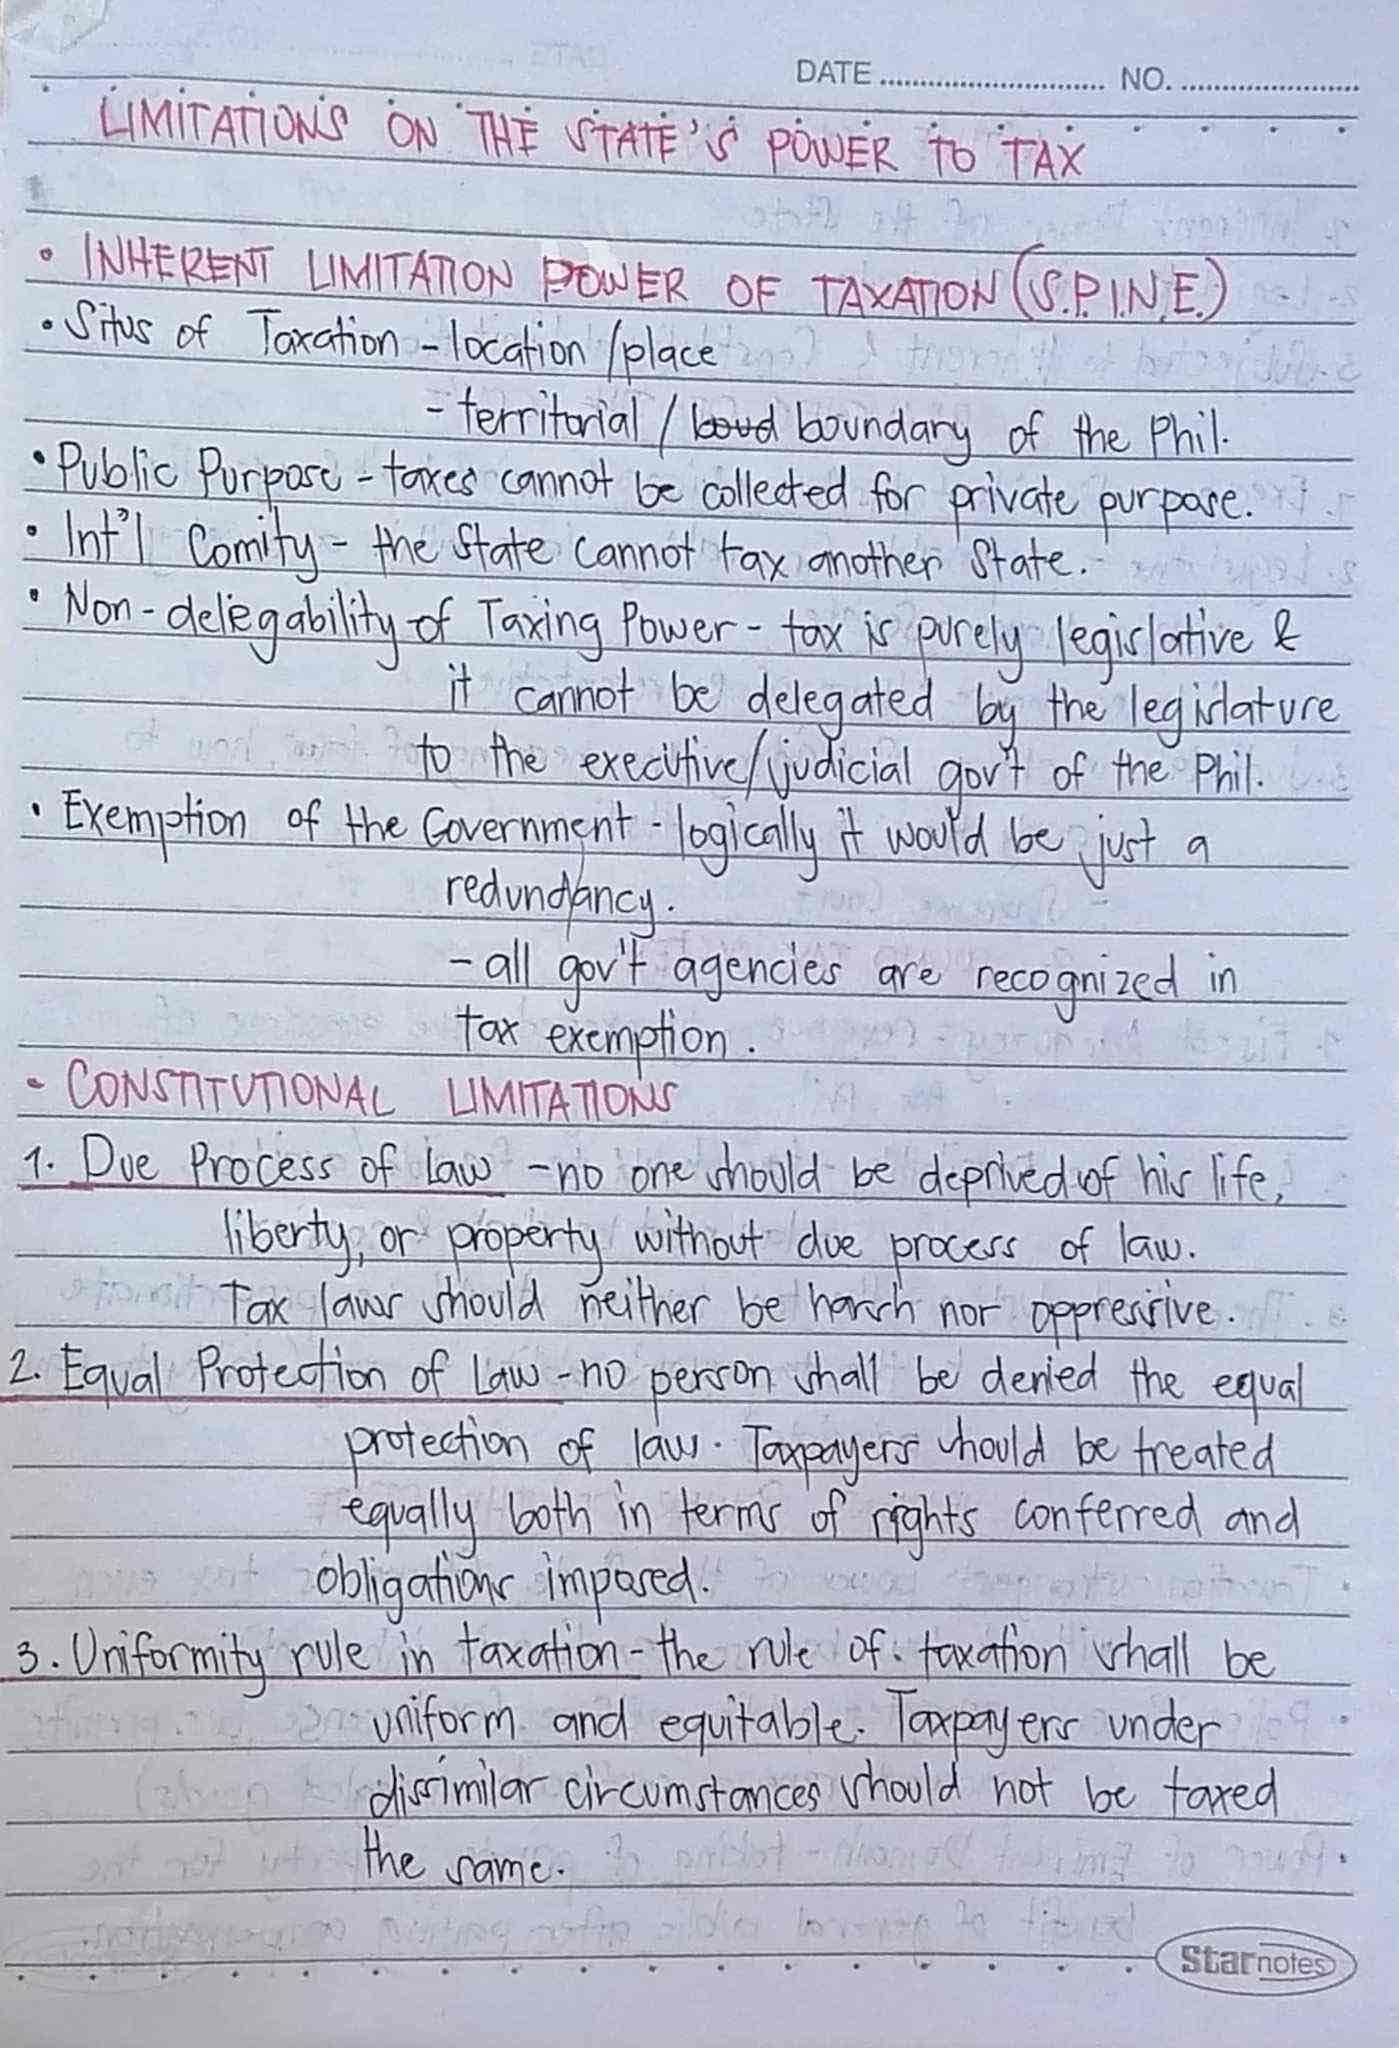 DATE ........................... NO. .....................
LIMITATIONS ON THE STATE'S POWER TO TAX
• INHERENT LIMITATION POWER OF TAXATION (S.P.I.N.E.)
• Situs of Taxation - location / place
- territorial / boud boundary of the Phil.
• Public Purpose - taxes cannot be collected for private purpose.
• Int'l Comity - the State cannot tax another State.
• Non-delegability of Taxing Power - tax is purely legislative &
it cannot be delegated by the legislature
to the executive/judicial gov't of the Phil.
• Exemption of the Government - logically it would be just a
redundancy.
- all gov't agencies are recognized in
tax exemption.
- CONSTITUTIONAL LIMITATIONS
1. Due Process of law - no one should be deprived of his life,
liberty, or property without due process of law.
Tax laws should neither be harsh nor oppressive.
2. Equal Protection of Law - no person shall be denied the equal
protection of law. Taxpayers should be treated
equally both in terms of rights conferred and
obligations imposed.
3. Uniformity rule in taxation - the rule of taxation shall be
uniform and equitable. Taxpayers under
dissimilar circumstances should not be taxed
the same.
Starnotes